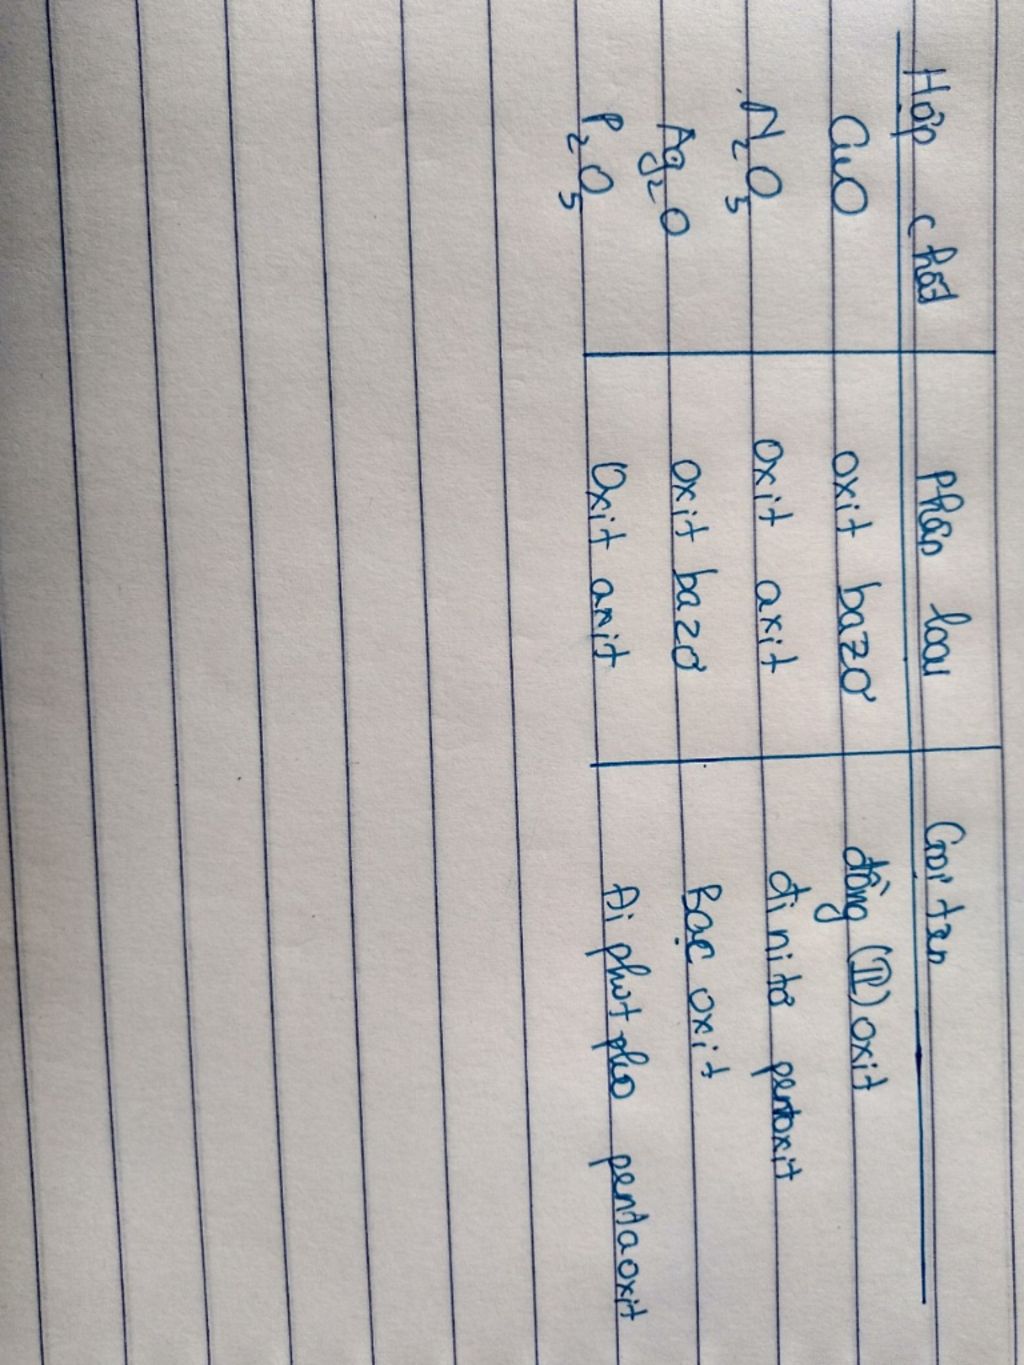 Hợp chất Phân loại Gọi tên
CuO oxit bazơ đồng (II) oxit
N2O5 oxit axit đi nitơ pentoxit
Ag2O oxit bazơ Bạc oxit
P2O5 Oxit axit Đi phot pho pentaoxit